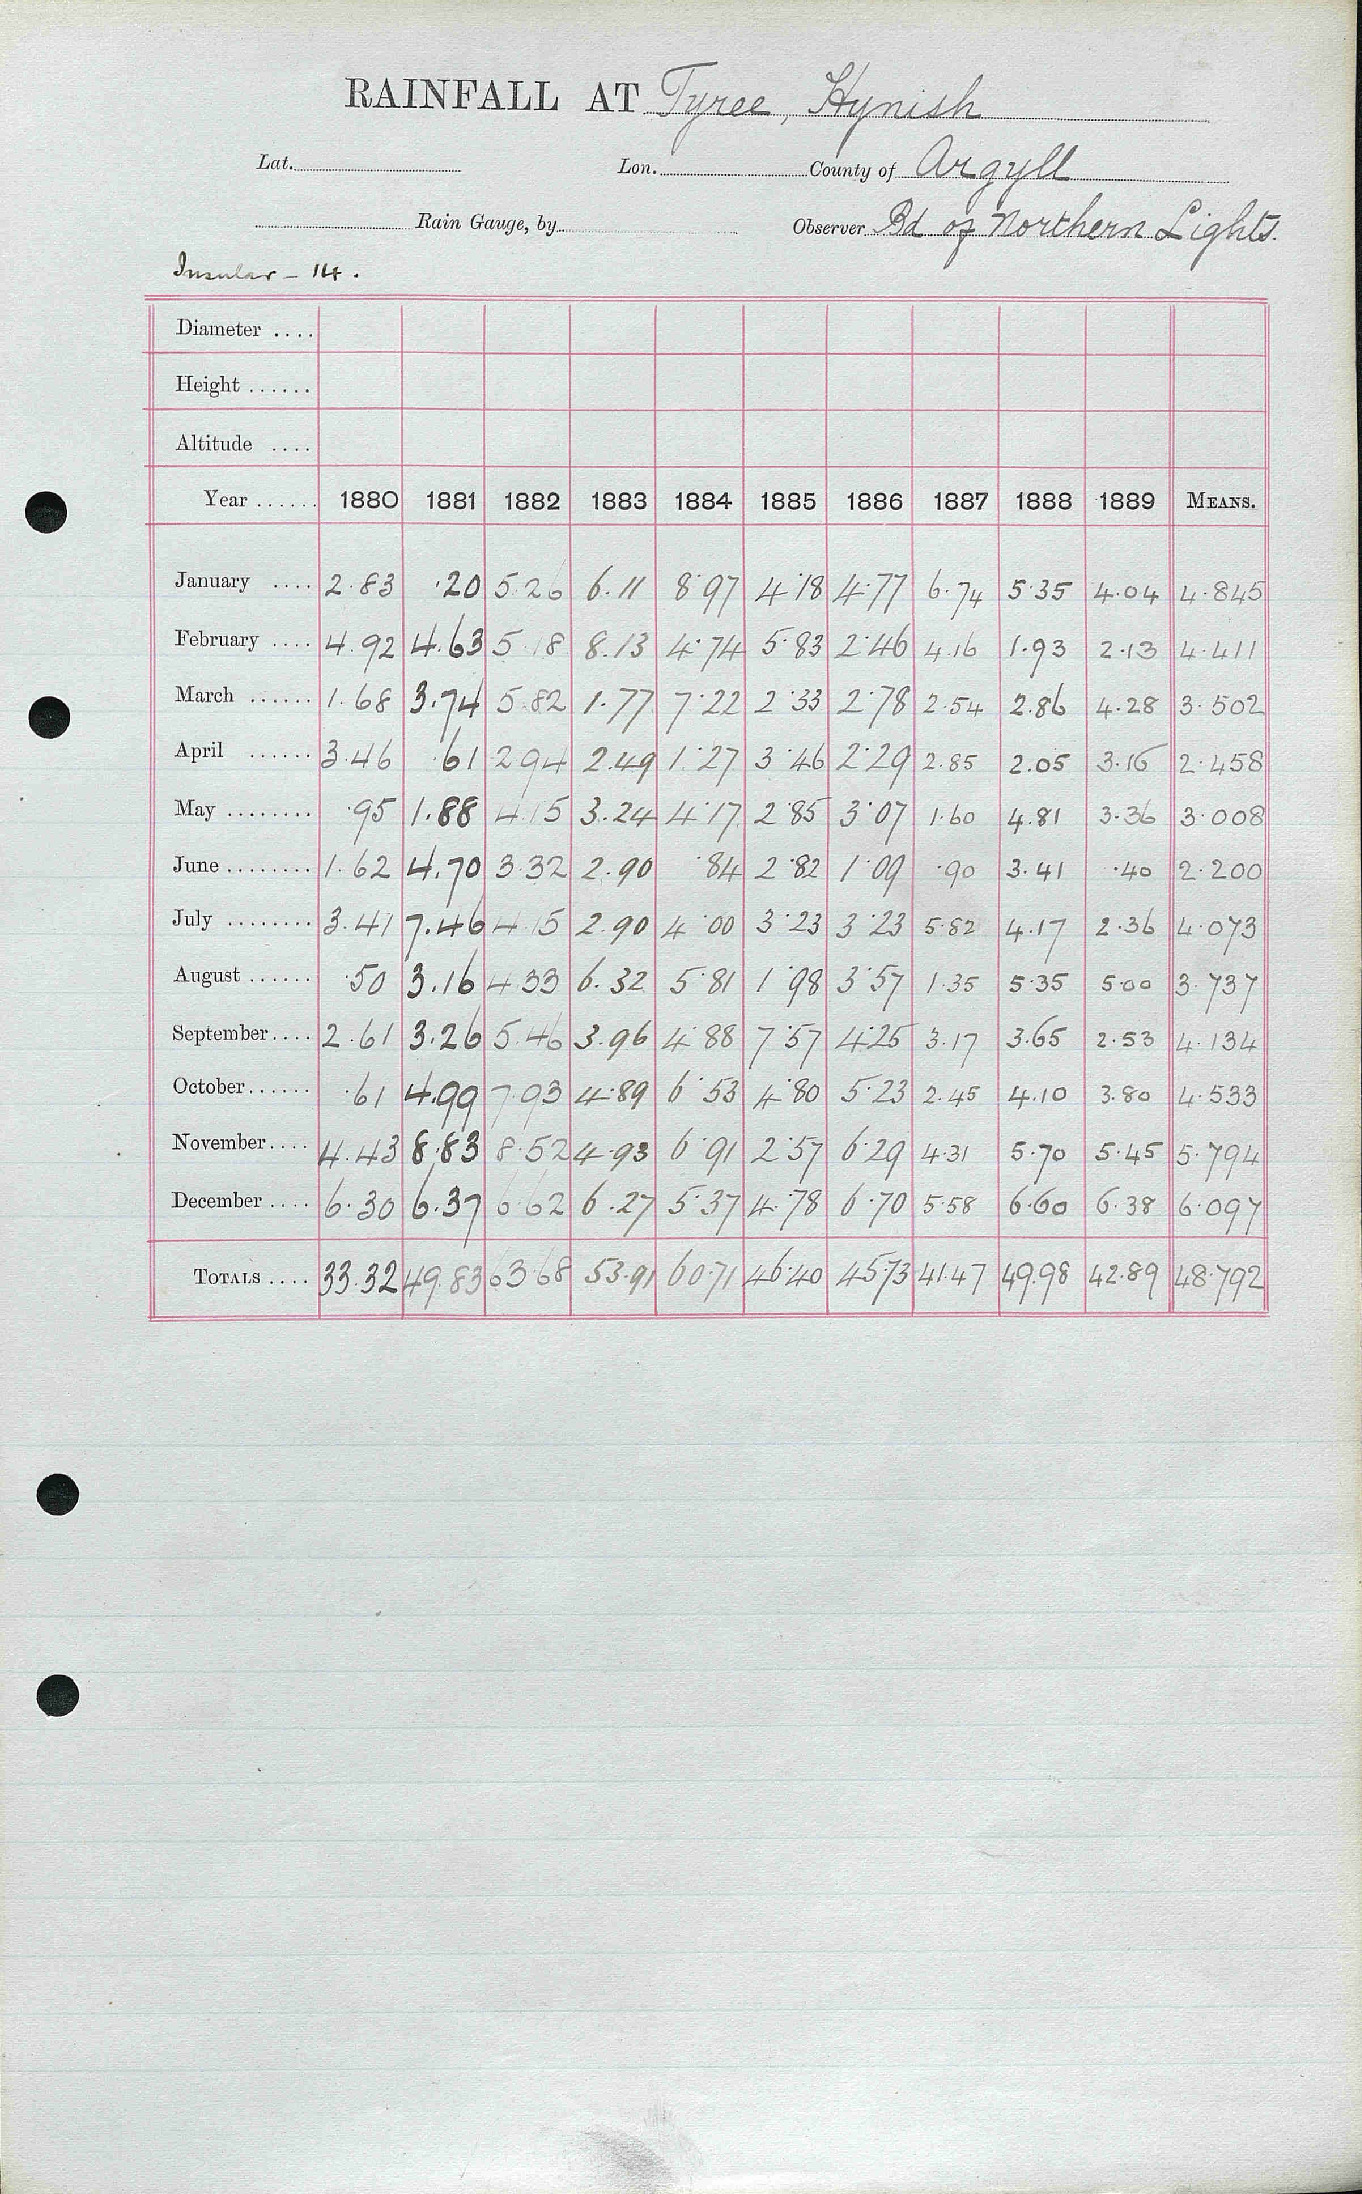 RAINFALL AT Tyree, Hynish
Lat. Lon. County of Argyll
Rain Gauge, by Observer Bd of Northern Lights.
Insular - 114.
Diameter ....
Height ......
Altitude ....
Year ...... 1880 1881 1882 1883 1884 1885 1886 1887 1888 1889 MEANS.
January .... 2.83 .20 5.26 6.11 8.97 4.18 4.77 6.74 5.35 4.04 4.845
February .... 4.92 4.63 5.18 8.13 4.74 5.83 2.46 4.16 1.93 2.13 4.411
March ...... 1.68 3.74 5.82 1.77 7.22 2.33 2.78 2.54 2.86 4.28 3.502
April ...... 3.46 .61 2.94 2.49 1.27 3.46 2.29 2.85 2.05 3.16 2.458
May ........ .95 1.88 4.15 3.24 4.17 2.85 3.07 1.60 4.81 3.36 3.008
June ........ 1.62 4.70 3.32 2.90 .84 2.82 1.09 .90 3.41 .40 2.200
July ........ 3.41 7.46 4.15 2.90 4.00 3.23 3.23 5.82 4.17 2.36 4.073
August ...... .50 3.16 4.33 6.32 5.81 1.98 3.57 1.35 5.35 5.00 3.737
September .... 2.61 3.26 5.46 3.96 4.88 7.57 4.25 3.17 3.65 2.53 4.134
October ...... .61 4.99 7.93 4.89 6.53 4.80 5.23 2.45 4.10 3.80 4.533
November .... 4.43 8.83 8.52 4.93 6.91 2.57 6.29 4.31 5.70 5.45 5.794
December .... 6.30 6.37 6.62 6.27 5.37 4.78 6.70 5.58 6.60 6.38 6.097
TOTALS .... 33.32 49.83 63.68 53.91 60.71 46.40 45.73 41.47 49.98 42.89 48.792